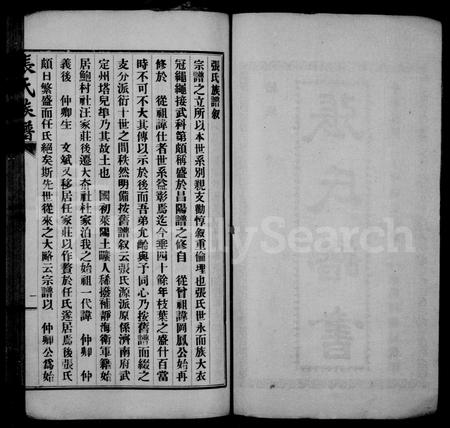 張氏族譜敘
宗譜之立所以本世系別親支勸惇敘重倫理也張氏世永而族大衣
冠繩繩接武科第頗稱盛於昌陽譜之修自 從曾祖諱岡鳳公始再
修於 從祖諱仕者世系益彰焉迄今垂四十餘年枝葉之盛什百當
時不可不大其傳以示於後而吾弟允齡與予同心乃按舊譜而綴之
支分派衍十世之間秩然明備按舊譜敘云張氏源派原係濟南府武
定州塔兒堼乃其故土也 國初萊陽土曠人稀撥補靜海衛軍籍始
居鮑村社汪家莊後遷大夼社杜家泊我之始祖一代諱 仲卿 仲
義後 仲卿生 文斌又移居任家莊以作贅於任氏遂居焉後張氏
頗日繁盛而任氏絕矣斯先世從來之大略云宗譜以 仲卿公爲始
張氏族譜
一
張氏譜書
FamilySearch